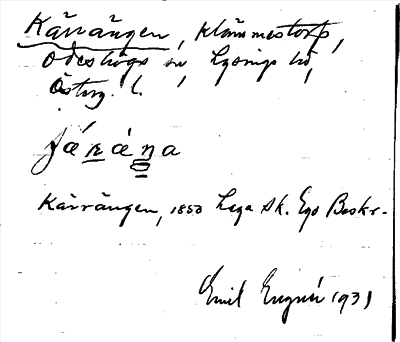 Kärrängen, Klämmestorp,
Ödeshögs sn Lysings hd,
Österg. l.
Kärrängen, 1850 Laga sk. Ego Beskr.
Emil 1931